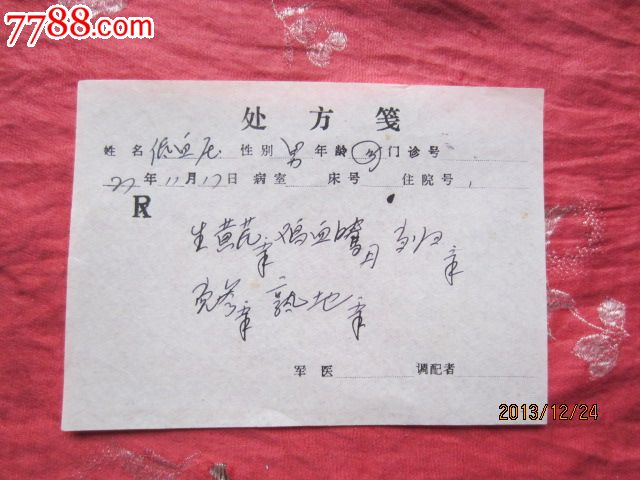 7788.com
处方笺
姓名 低血压 性别 男 年龄 门诊号
77年11月17日 病室 床号 住院号
R
生黄芪 鸡血藤 当归
党参 熟地
军医 调配者
2013/12/24